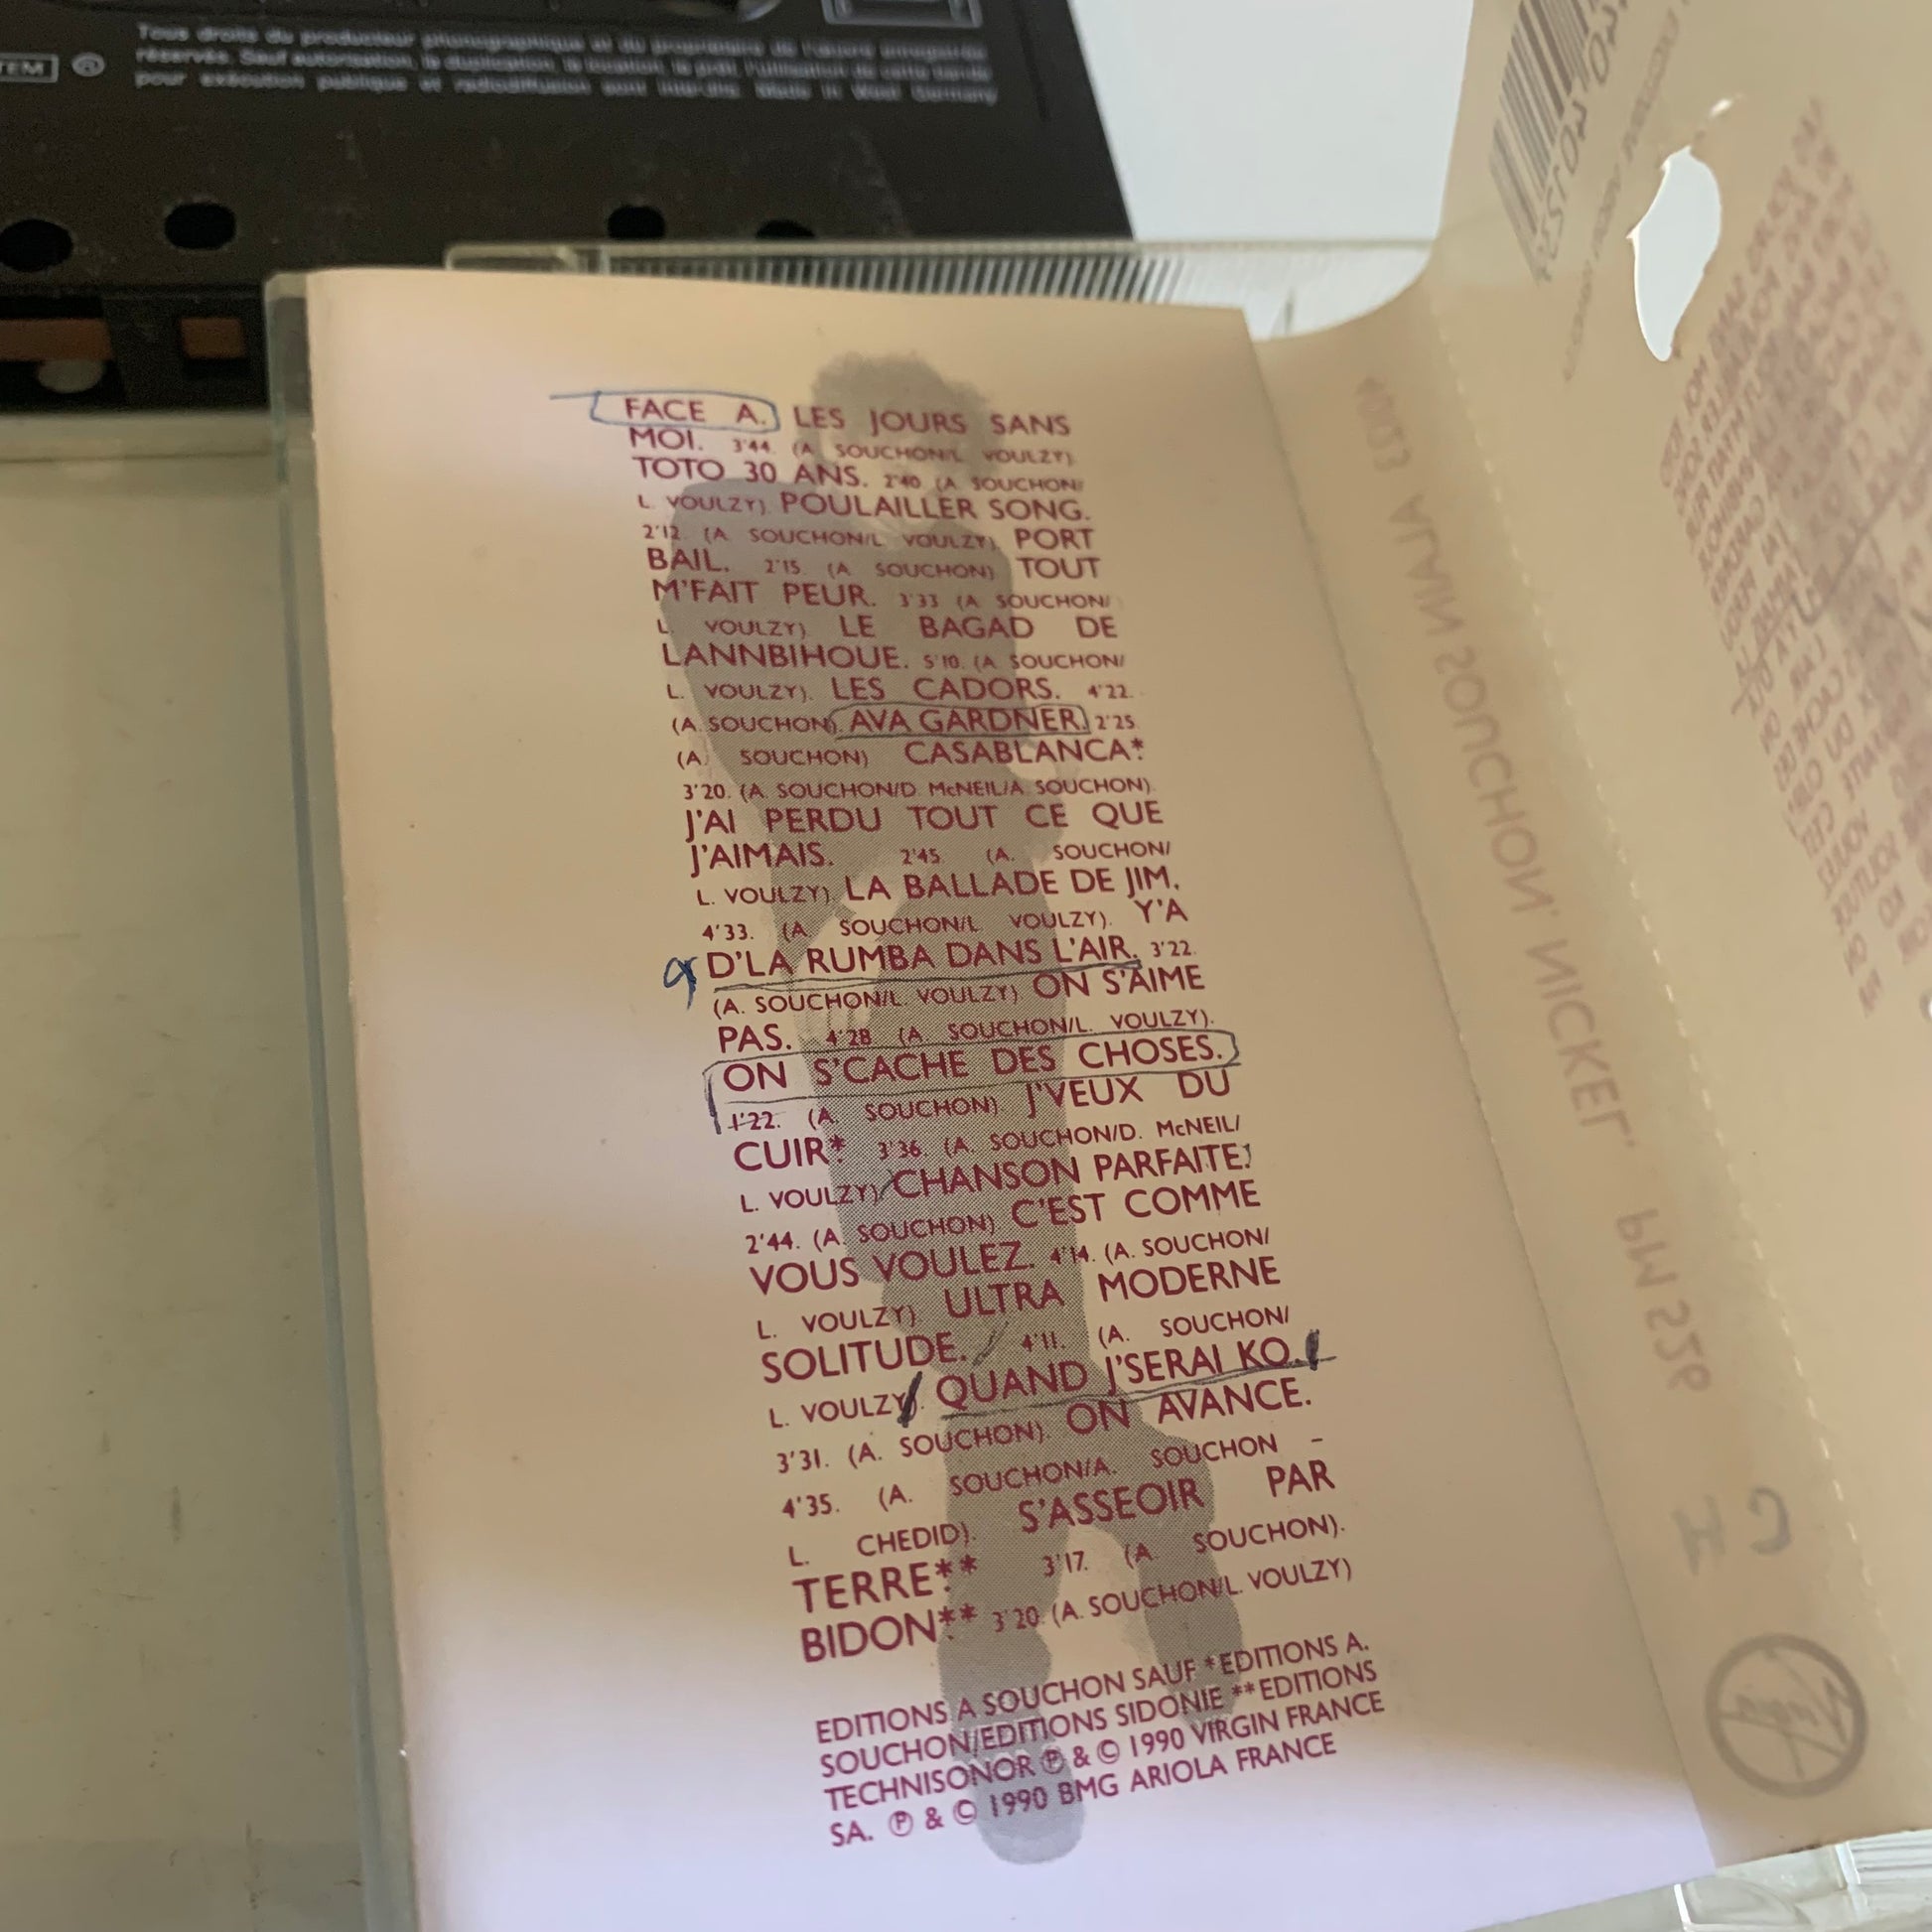 TEM ®
Tous droits du producteur phonographique et du propriétaire de l'œuvre enregistrée
réservés. Sauf autorisation, la duplication, la location, le prêt, l'utilisation de cette bande
pour exécution publique et radiodiffusion sont interdits. Made in West Germany
FACE A. LES JOURS SANS
MOI. 3'44. (A. SOUCHON/L. VOULZY).
TOTO 30 ANS. 2'40 (A. SOUCHON/
L. VOULZY). POULAILLER SONG.
2'12. (A. SOUCHON/L. VOULZY). PORT
BAIL. 2'15 (A. SOUCHON). TOUT
M'FAIT PEUR. 3'33 (A. SOUCHON/
L. VOULZY). LE BAGAD DE
LANNBIHOUE. 5'10. (A. SOUCHON/
L. VOULZY). LES CADORS. 4'22.
(A. SOUCHON). AVA GARDNER. 2'25.
(A. SOUCHON) CASABLANCA.*
3'20. (A. SOUCHON/D. McNEIL/A. SOUCHON).
J'AI PERDU TOUT CE QUE
J'AIMAIS. 2'45. (A. SOUCHON/
L. VOULZY). LA BALLADE DE JIM.
4'33. (A. SOUCHON/L. VOULZY). Y'A
D'LA RUMBA DANS L'AIR. 3'22.
(A. SOUCHON/L. VOULZY) ON S'AIME
PAS. 4'28. (A. SOUCHON/L. VOULZY).
ON S'CACHE DES CHOSES.
1'22. (A. SOUCHON). J'VEUX DU
CUIR.* 3'36. (A. SOUCHON/D. McNEIL/
L. VOULZY) CHANSON PARFAITE.
2'44. (A. SOUCHON). C'EST COMME
VOUS VOULEZ. 4'14. (A. SOUCHON/
L. VOULZY). ULTRA MODERNE
SOLITUDE. 4'11. (A. SOUCHON/
L. VOULZY). QUAND J'SERAI KO.
3'31. (A. SOUCHON). ON AVANCE.
4'35. (A. SOUCHON/A. SOUCHON -
L. CHEDID). S'ASSEOIR PAR
TERRE.** 3'17. (A. SOUCHON).
BIDON.** 3'20. (A. SOUCHON/L. VOULZY)
EDITIONS A SOUCHON SAUF *EDITIONS A.
SOUCHON/EDITIONS SIDONIE **EDITIONS
TECHNISONOR ℗ & © 1990 VIRGIN FRANCE
SA. ℗ & © 1990 BMG ARIOLA FRANCE
ALAIN SOUCHON. NICKEL.
PM 527